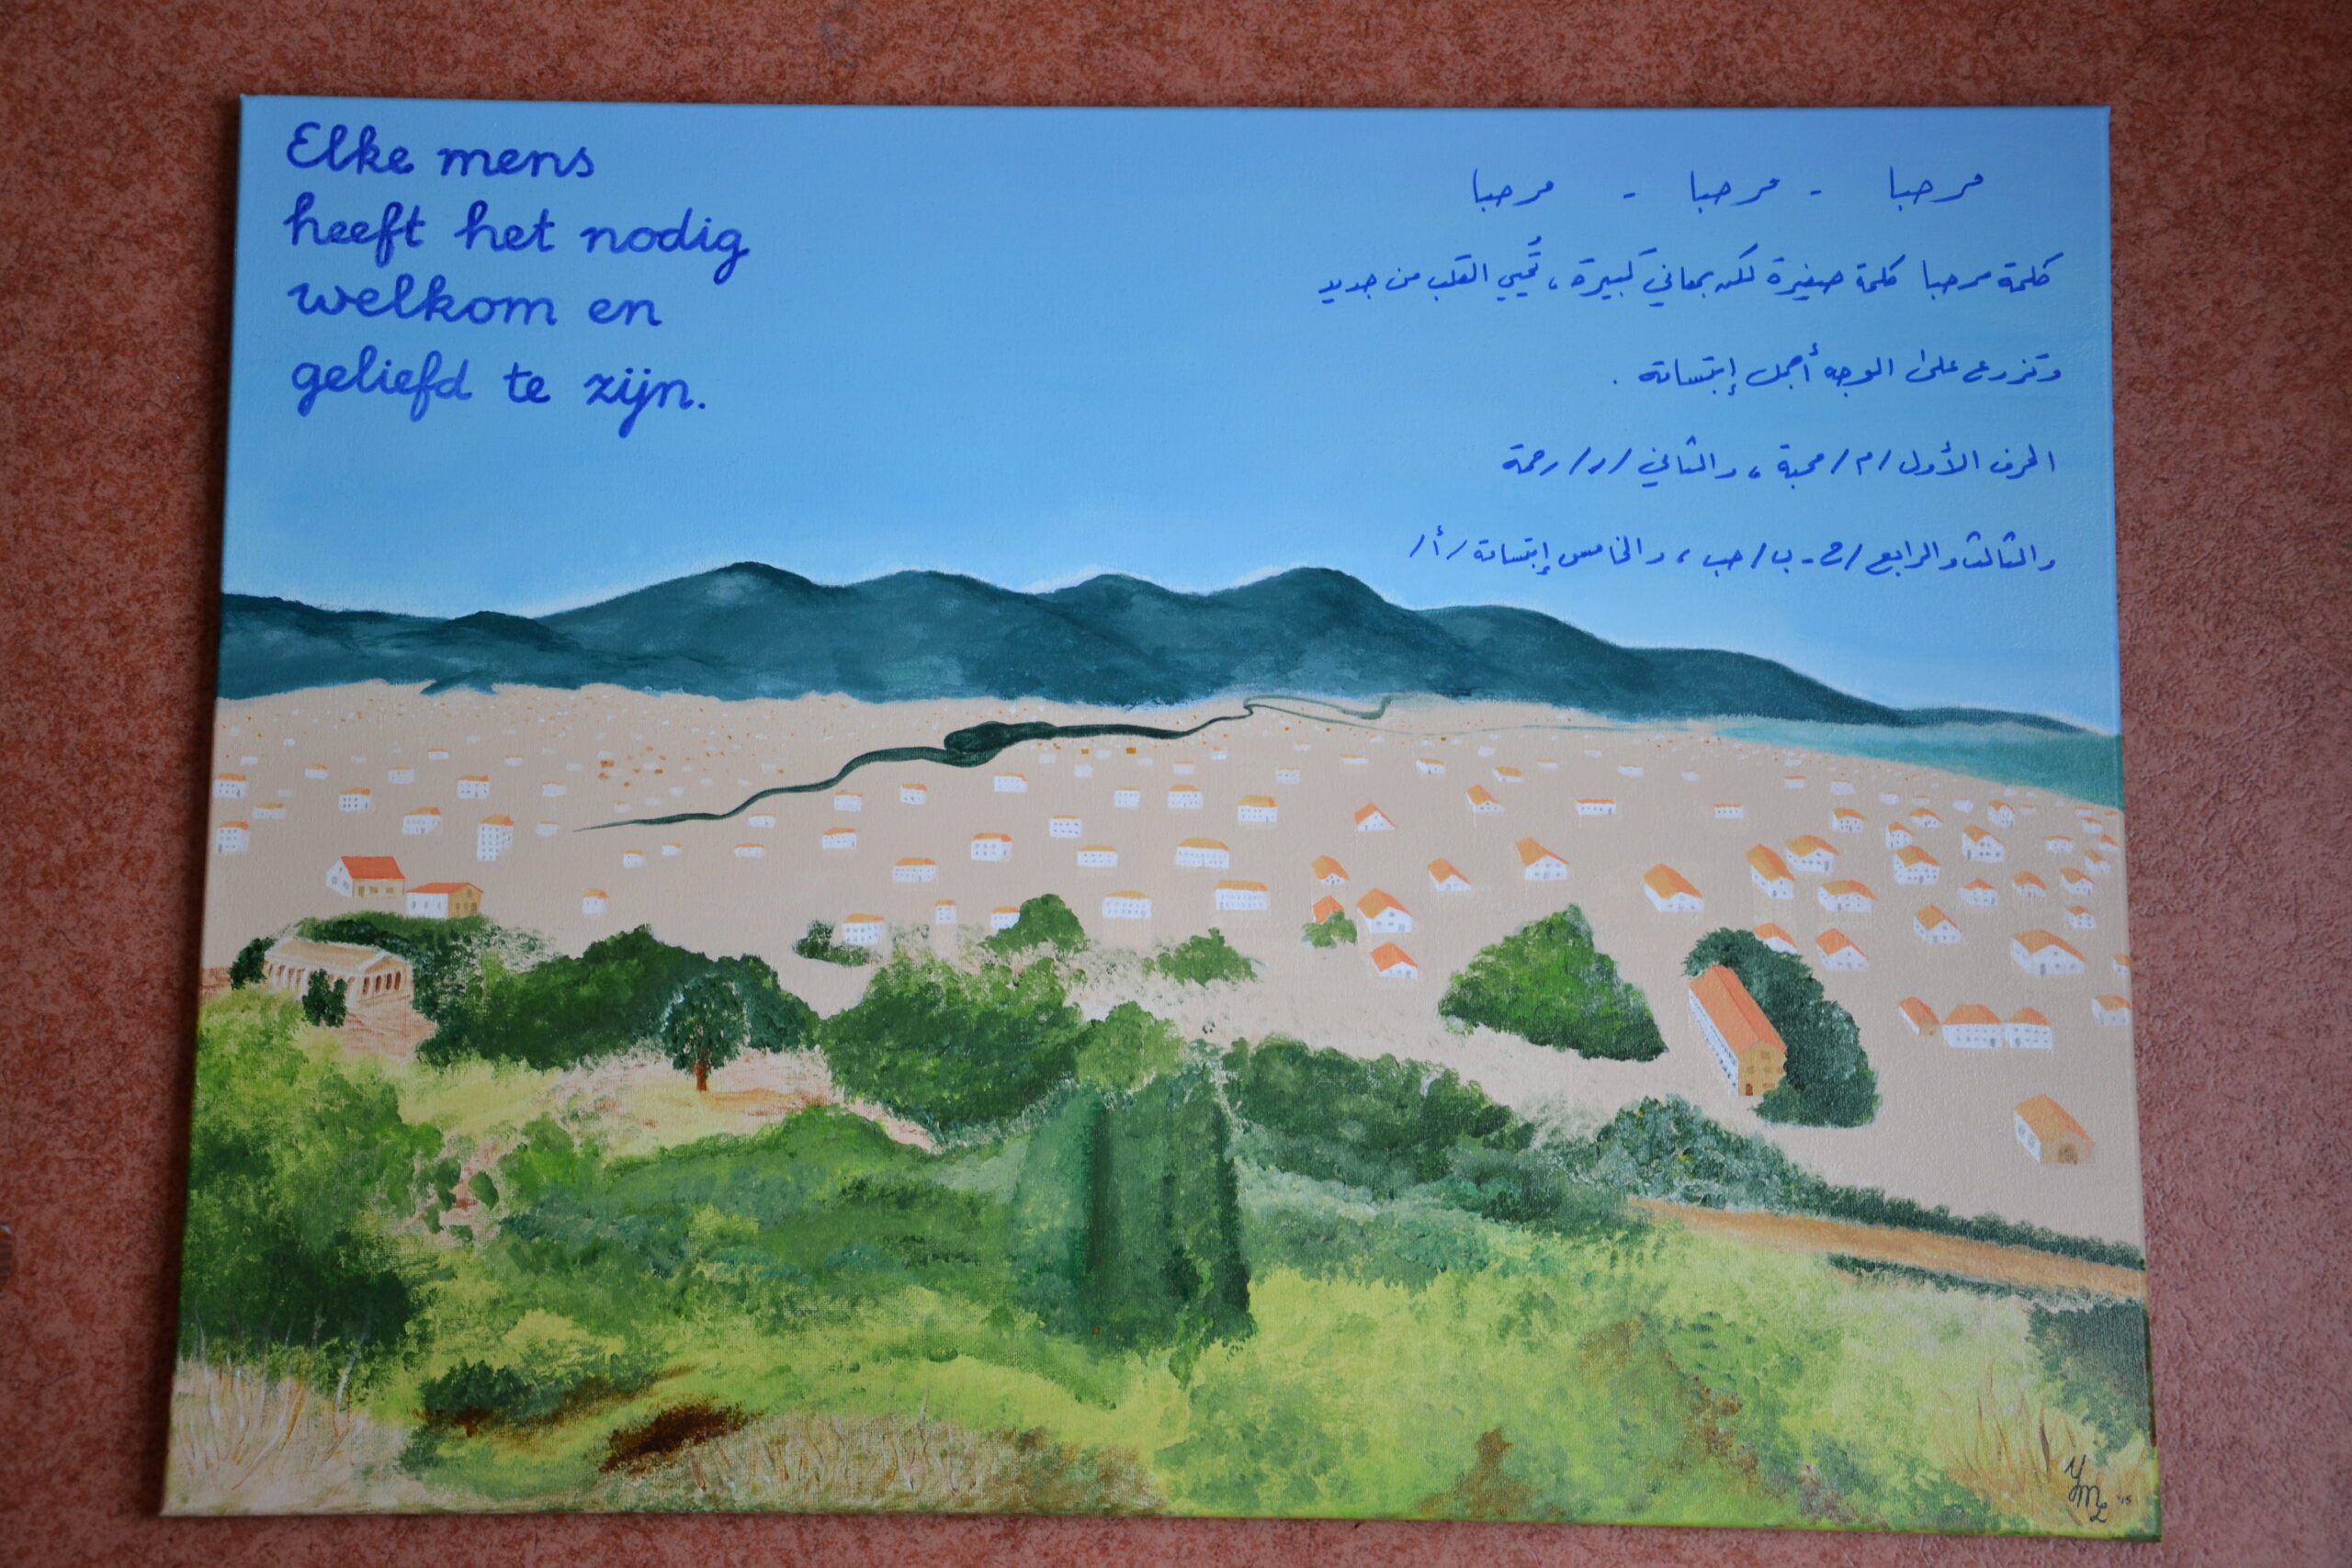 Elke mens
heeft het nodig
welkom en
geliefd te zijn.
مرحبا - مرحبا - مرحبا
كلمة مرحبا كلمة صغيرة لكن بمعاني كبيرة، تُحيي القلب من جديد
وتزرع على الوجه أجمل إبتسامة .
الحرف الأول /م/ محبة، والثاني /ر/ رحمة
والثالث والرابع /ح - ب/ حب، والخامس إبتسامة /أ/
YML '15